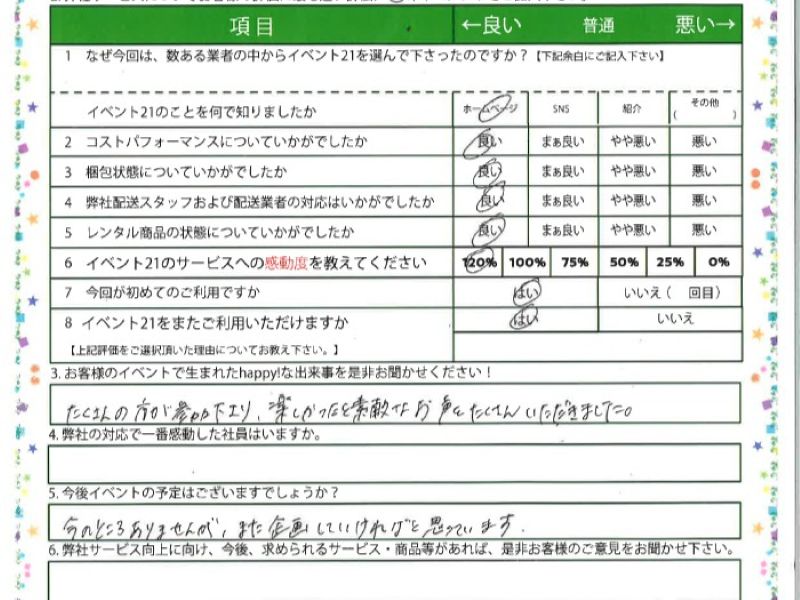 項目 ←良い 普通 悪い→
1 なぜ今回は、数ある業者の中からイベント21を選んで下さったのですか？【下記余白にご記入下さい】
イベント21のことを何で知りましたか ホームページ SNS 紹介 その他 ( )
2 コストパフォーマンスについていかがでしたか 良い まぁ良い やや悪い 悪い
3 梱包状態についていかがでしたか 良い まぁ良い やや悪い 悪い
4 弊社配送スタッフおよび配送業者の対応はいかがでしたか 良い まぁ良い やや悪い 悪い
5 レンタル商品の状態についていかがでしたか 良い まぁ良い やや悪い 悪い
6 イベント21のサービスへの感動度を教えてください 120% 100% 75% 50% 25% 0%
7 今回が初めてのご利用ですか はい いいえ ( 回目)
8 イベント21をまたご利用いただけますか はい いいえ
【上記評価をご選択頂いた理由についてお教え下さい。】
3. お客様のイベントで生まれたhappy!な出来事を是非お聞かせください！
たくさんの方が参加下さり、楽しかったなど素敵なお声をたくさんいただきました。
4. 弊社の対応で一番感動した社員はいますか。
5. 今後イベントの予定はございますでしょうか？
今のところありませんが、また企画していければと思っています.
6. 弊社サービス向上に向け、今後、求められるサービス・商品等があれば、是非お客様のご意見をお聞かせ下さい。